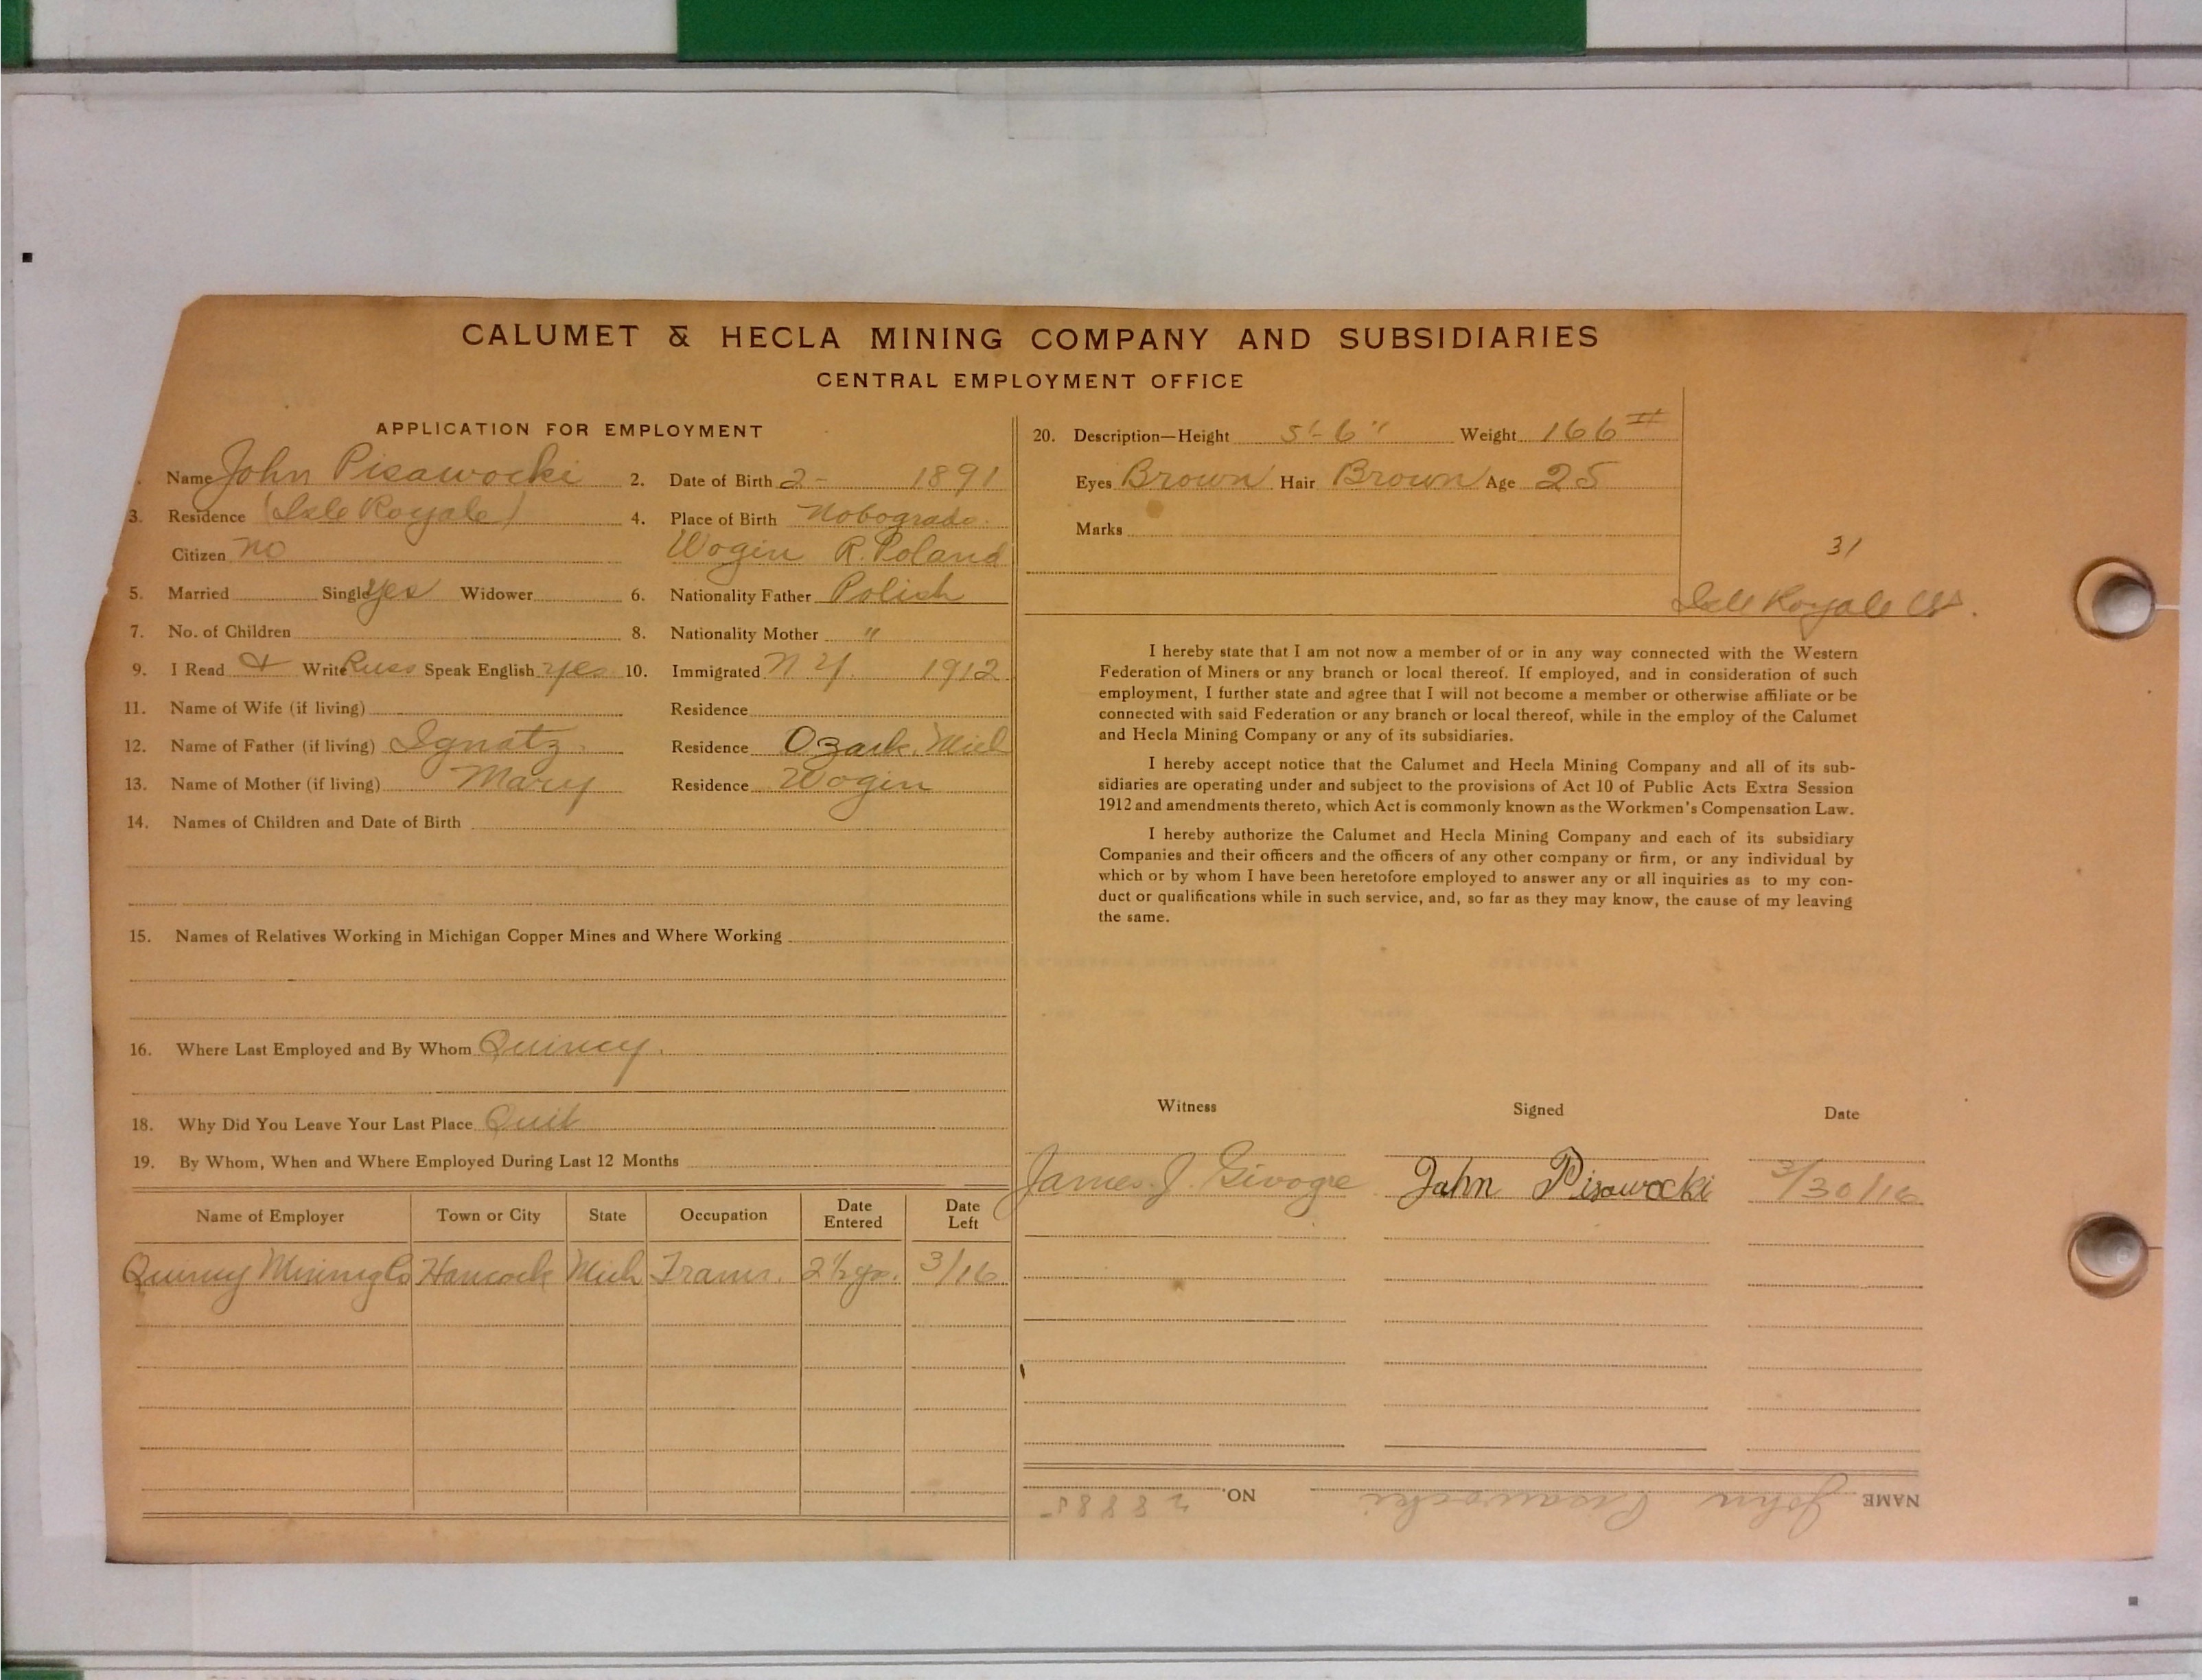 CALUMET & HECLA MINING COMPANY AND SUBSIDIARIES
CENTRAL EMPLOYMENT OFFICE
APPLICATION FOR EMPLOYMENT
Name John Pisawocki 2. Date of Birth 2- 1891
3. Residence (Isle Royale) 4. Place of Birth Nobogrado.
Citizen no Wogin R. Poland
5. Married Single yes Widower 6. Nationality Father Polish
7. No. of Children 8. Nationality Mother "
9. I Read & Write Russ Speak English yes 10. Immigrated N Y. 1912
11. Name of Wife (if living) Residence
12. Name of Father (if living) Ignatz. Residence Ozark. Mich
13. Name of Mother (if living) Mary Residence Wogin
14. Names of Children and Date of Birth
15. Names of Relatives Working in Michigan Copper Mines and Where Working
16. Where Last Employed and By Whom Quincy.
18. Why Did You Leave Your Last Place Quit
19. By Whom, When and Where Employed During Last 12 Months
Name of Employer Town or City State Occupation Date Entered Date Left
Quincy Mining Co Hancock Mich Tram. 2½ yr. 3/16
20. Description—Height 5'-6" Weight 166#
Eyes Brown Hair Brown Age 25
Marks
31
Isle Royale
I hereby state that I am not now a member of or in any way connected with the Western
Federation of Miners or any branch or local thereof. If employed, and in consideration of such
employment, I further state and agree that I will not become a member or otherwise affiliate or be
connected with said Federation or any branch or local thereof, while in the employ of the Calumet
and Hecla Mining Company or any of its subsidiaries.
I hereby accept notice that the Calumet and Hecla Mining Company and all of its sub-
sidiaries are operating under and subject to the provisions of Act 10 of Public Acts Extra Session
1912 and amendments thereto, which Act is commonly known as the Workmen's Compensation Law.
I hereby authorize the Calumet and Hecla Mining Company and each of its subsidiary
Companies and their officers and the officers of any other company or firm, or any individual by
which or by whom I have been heretofore employed to answer any or all inquiries as to my con-
duct or qualifications while in such service, and, so far as they may know, the cause of my leaving
the same.
Witness Signed Date
James J. Givogre John Pisowocki 3/30/16
NAME John Pisawocki NO. 28885